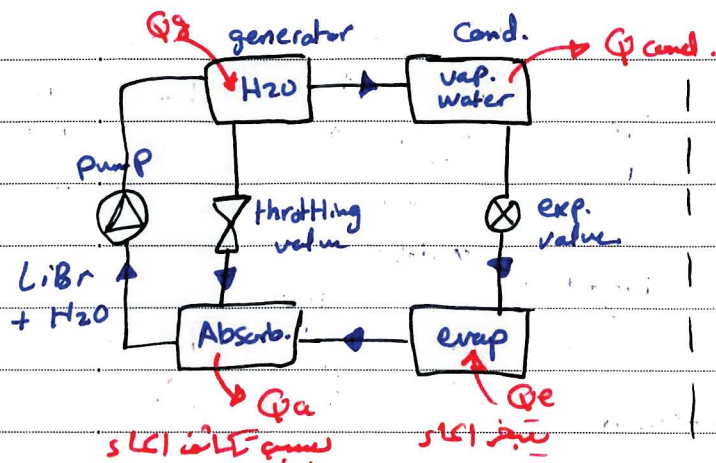 Qg
generator
Cond.
Q cond.
H2O
vap.
water
pump
throttling
valve
exp.
valve
LiBr
+ H2O
Absorb.
evap
Qa
Qe
بسبب تكاثف الماء
يتبخر الماء